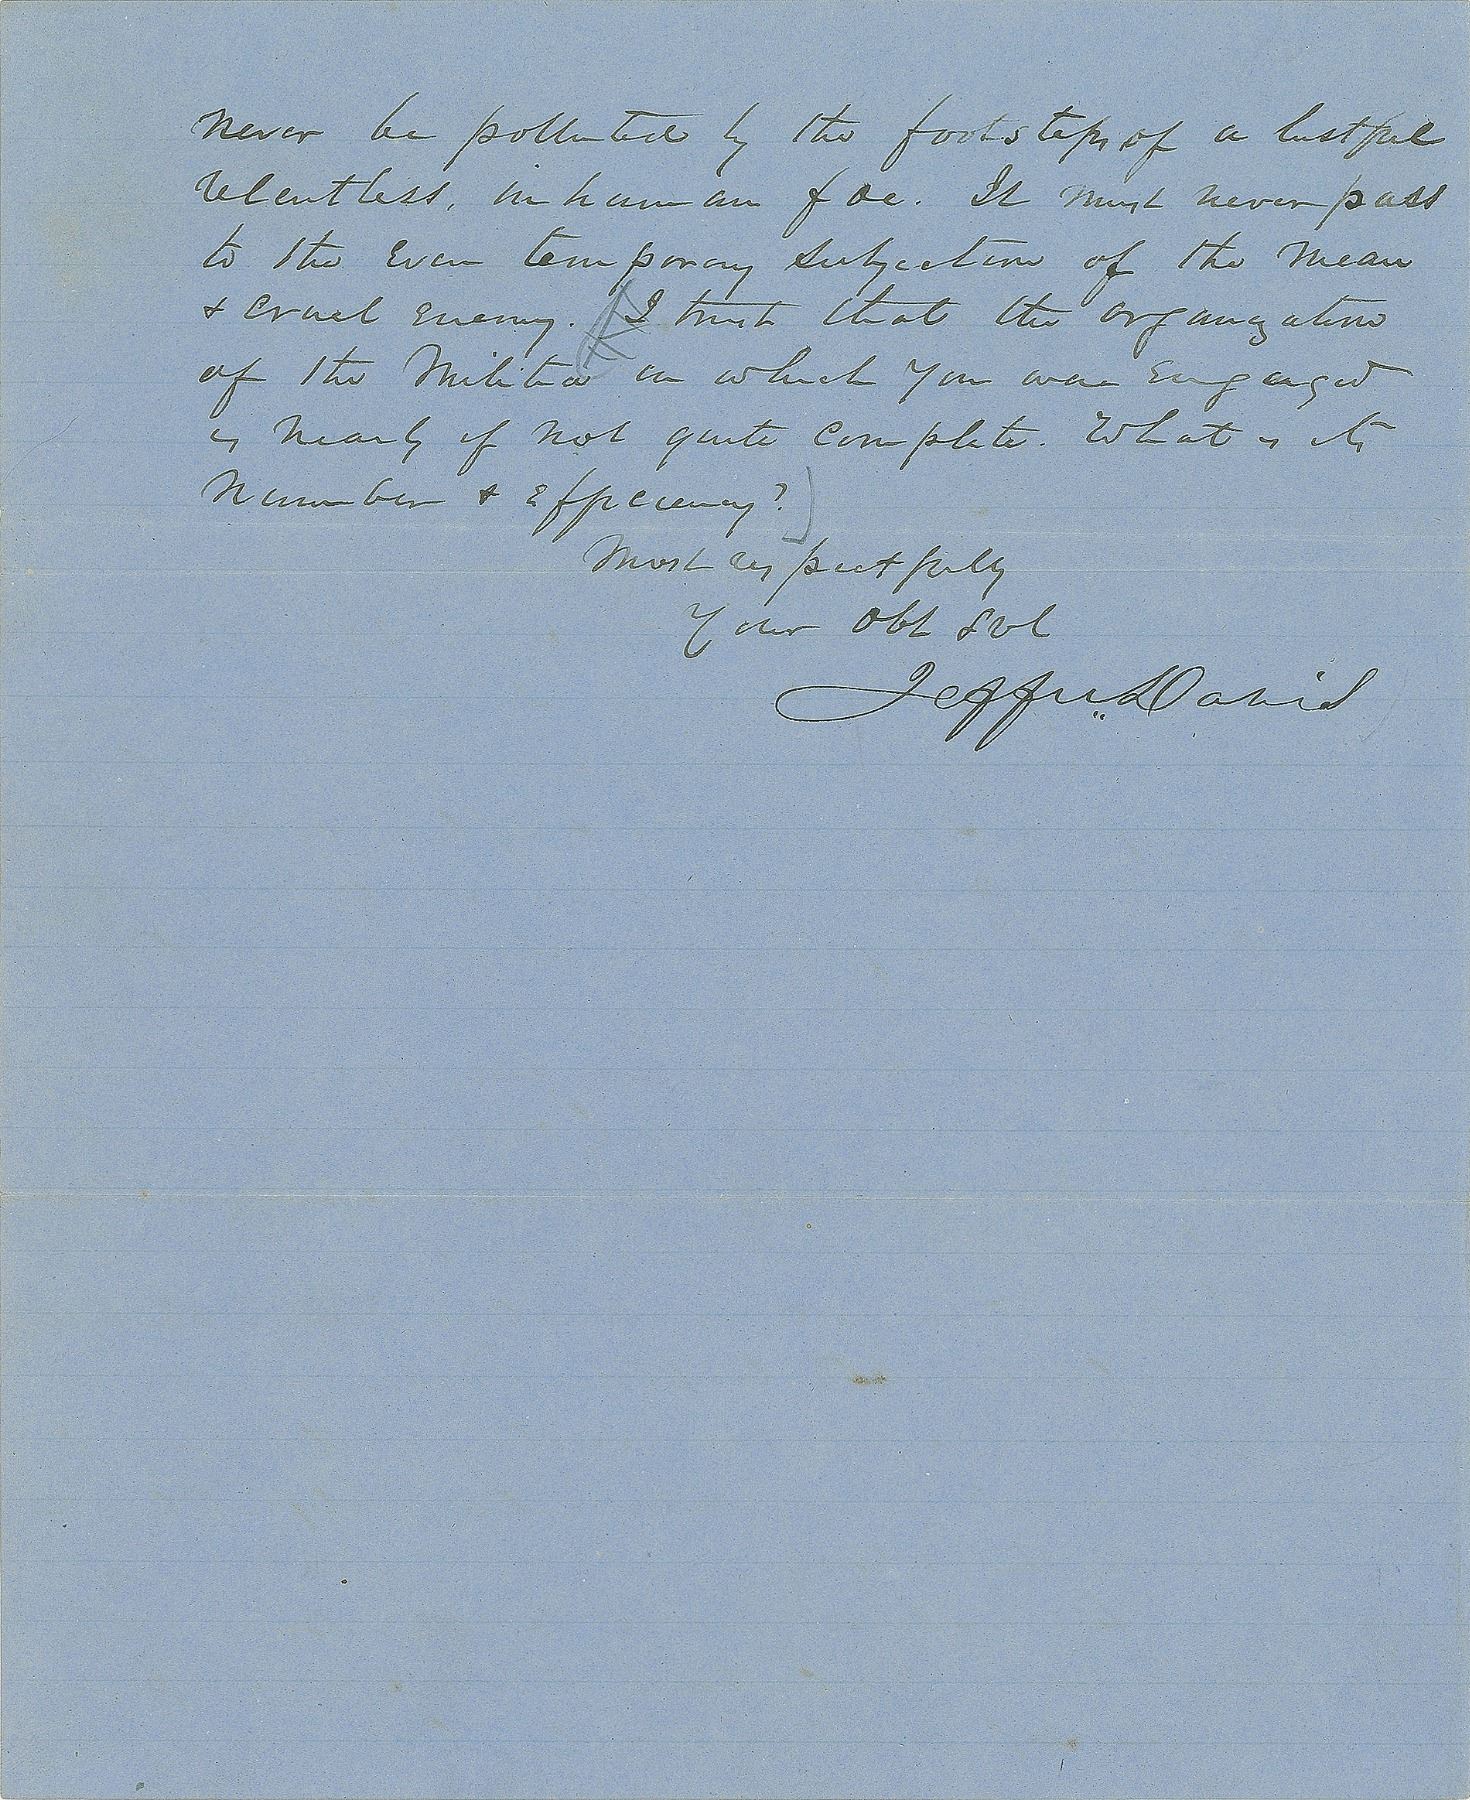 never be polluted by the footsteps of a lustful
relentless, inhuman foe. It must never pass
to the even temporary subjection of the mean
& cruel enemy. I trust that the organization
of the Militia in which you were engaged
is nearly if not quite complete. What is its
number & efficiency?)
Most respectfully
Your Obt Svt
Jeffn Davis